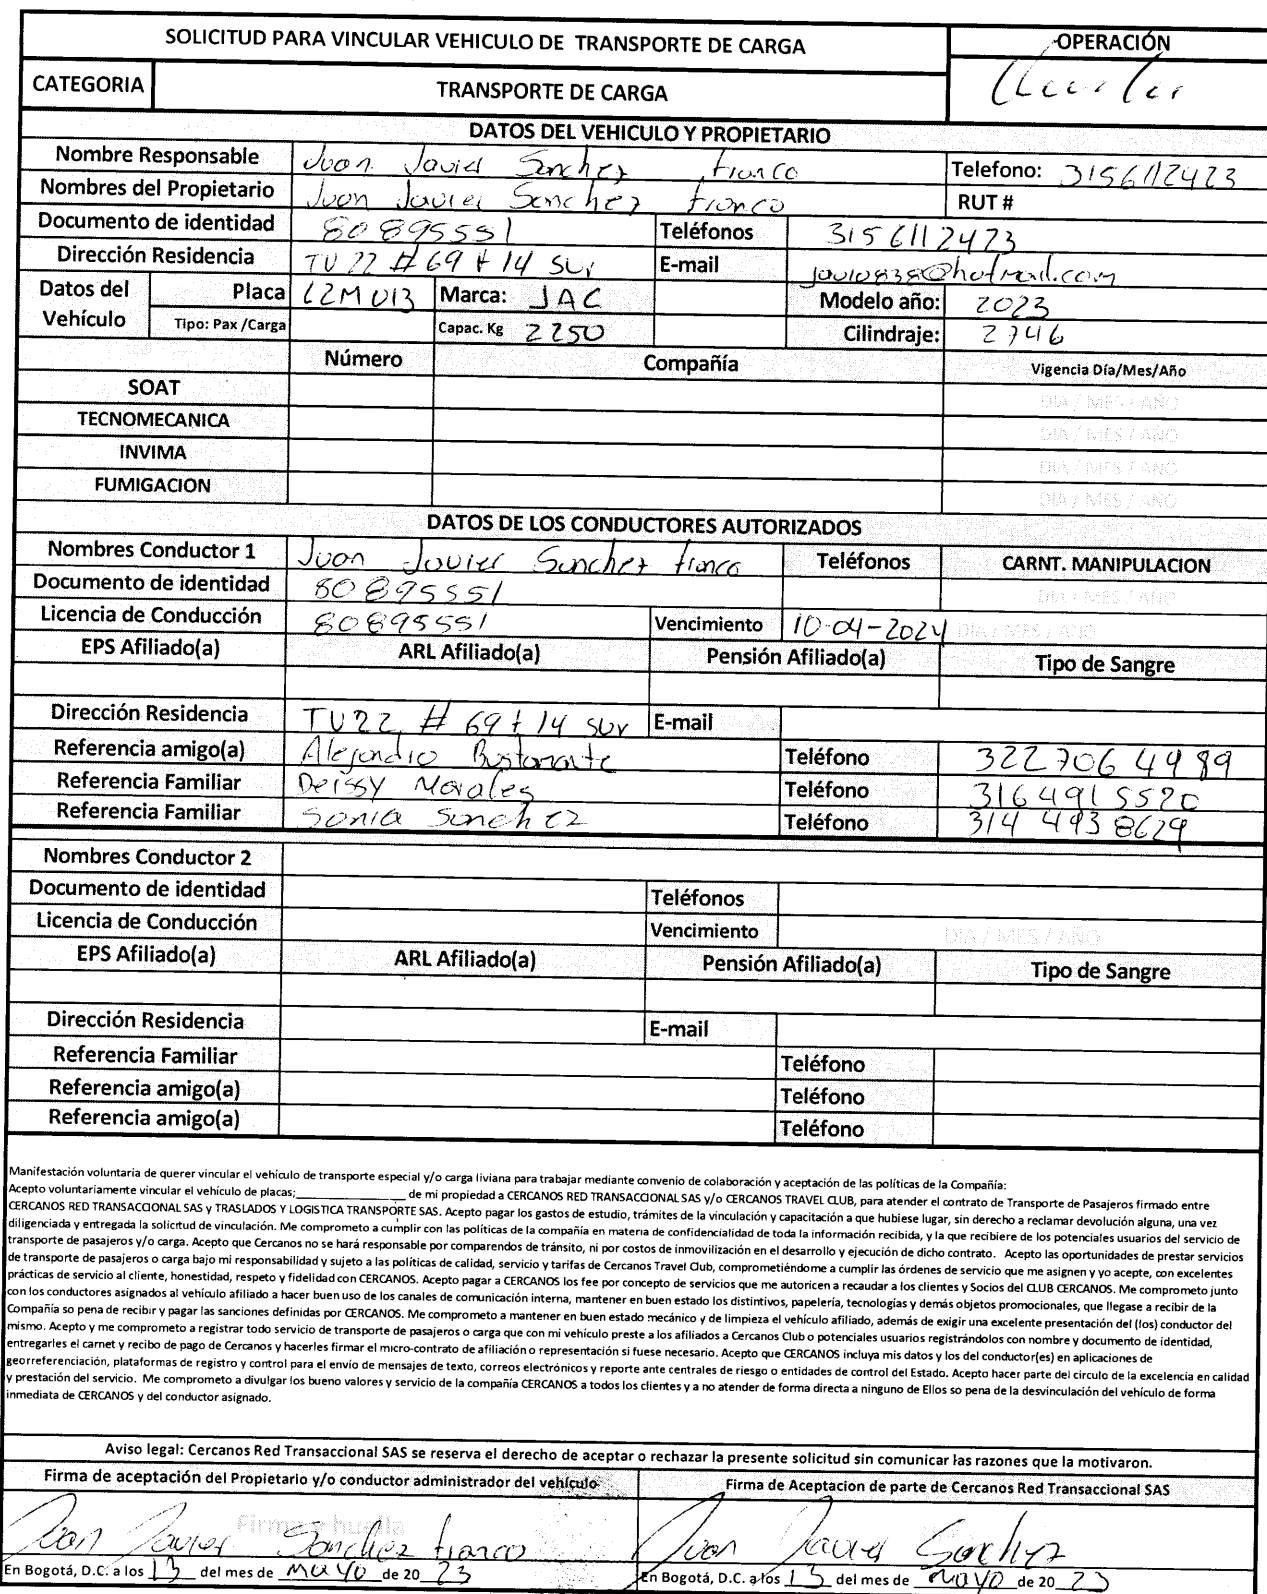 SOLICITUD PARA VINCULAR VEHICULO DE TRANSPORTE DE CARGA OPERACIÓN
CATEGORIA TRANSPORTE DE CARGA
DATOS DEL VEHICULO Y PROPIETARIO
Nombre Responsable Juan Javier Sanchez franco Telefono: 3156112423
Nombres del Propietario Juan Javier Sanchez franco RUT #
Documento de identidad 80895551 Teléfonos 3156112473
Dirección Residencia TV 22 # 69 t 14 sur E-mail @hotmail.com
Datos del Vehículo Placa LZM013 Marca: JAC Modelo año: 2023
Tipo: Pax /Carga Capac. Kg 2250 Cilindraje: 2746
Número Compañía Vigencia Día/Mes/Año
SOAT DIA / MES / AÑO
TECNOMECANICA DIA / MES / AÑO
INVIMA DIA / MES / AÑO
FUMIGACION DIA / MES / AÑO
DATOS DE LOS CONDUCTORES AUTORIZADOS
Nombres Conductor 1 Juan Javier Sanchez franco Teléfonos CARNT. MANIPULACION
Documento de identidad 80895551 DIA / MES / AÑO
Licencia de Conducción 80895551 Vencimiento 10-04-2024 DIA / MES / AÑO
EPS Afiliado(a) ARL Afiliado(a) Pensión Afiliado(a) Tipo de Sangre
Dirección Residencia TV 22 # 69 t 14 sur E-mail
Referencia amigo(a) Alejandro Bustamante Teléfono 322 706 4989
Referencia Familiar Deissy Morales Teléfono 3164915520
Referencia Familiar Sonia Sanchez Teléfono 314 493 8629
Nombres Conductor 2
Documento de identidad Teléfonos
Licencia de Conducción Vencimiento DIA / MES / AÑO
EPS Afiliado(a) ARL Afiliado(a) Pensión Afiliado(a) Tipo de Sangre
Dirección Residencia E-mail
Referencia Familiar Teléfono
Referencia amigo(a) Teléfono
Referencia amigo(a) Teléfono
Manifestación voluntaria de querer vincular el vehículo de transporte especial y/o carga liviana para trabajar mediante convenio de colaboración y aceptación de las políticas de la Compañía:
Acepto voluntariamente vincular el vehículo de placas;________________ de mi propiedad a CERCANOS RED TRANSACCIONAL SAS y/o CERCANOS TRAVEL CLUB, para atender el contrato de Transporte de Pasajeros firmado entre
CERCANOS RED TRANSACCIONAL SAS y TRASLADOS Y LOGISTICA TRANSPORTE SAS. Acepto pagar los gastos de estudio, trámites de la vinculación y capacitación a que hubiese lugar, sin derecho a reclamar devolución alguna, una vez
diligenciada y entregada la solicitud de vinculación. Me comprometo a cumplir con las políticas de la compañía en materia de confidencialidad de toda la información recibida, y la que recibiere de los potenciales usuarios del servicio de
transporte de pasajeros y/o carga. Acepto que Cercanos no se hará responsable por comparendos de tránsito, ni por costos de inmovilización en el desarrollo y ejecución de dicho contrato. Acepto las oportunidades de prestar servicios
de transporte de pasajeros o carga bajo mi responsabilidad y sujeto a las políticas de calidad, servicio y tarifas de Cercanos Travel Club, comprometiéndome a cumplir las órdenes de servicio que me asignen y yo acepte, con excelentes
prácticas de servicio al cliente, honestidad, respeto y fidelidad con CERCANOS. Acepto pagar a CERCANOS los fee por concepto de servicios que me autoricen a recaudar a los clientes y Socios del CLUB CERCANOS. Me comprometo junto
con los conductores asignados al vehículo afiliado a hacer buen uso de los canales de comunicación interna, mantener en buen estado los distintivos, papelería, tecnologías y demás objetos promocionales, que llegase a recibir de la
Compañía so pena de recibir y pagar las sanciones definidas por CERCANOS. Me comprometo a mantener en buen estado mecánico y de limpieza el vehículo afiliado, además de exigir una excelente presentación del (los) conductor del
mismo. Acepto y me comprometo a registrar todo servicio de transporte de pasajeros o carga que con mi vehículo preste a los afiliados a Cercanos Club o potenciales usuarios registrándolos con nombre y documento de identidad,
entregarles el carnet y recibo de pago de Cercanos y hacerles firmar el micro-contrato de afiliación o representación si fuese necesario. Acepto que CERCANOS incluya mis datos y los del conductor(es) en aplicaciones de
georreferenciación, plataformas de registro y control para el envío de mensajes de texto, correos electrónicos y reporte ante centrales de riesgo o entidades de control del Estado. Acepto hacer parte del circulo de la excelencia en calidad
y prestación del servicio. Me comprometo a divulgar los bueno valores y servicio de la compañía CERCANOS a todos los clientes y a no atender de forma directa a ninguno de Ellos so pena de la desvinculación del vehículo de forma
inmediata de CERCANOS y del conductor asignado.
Aviso legal: Cercanos Red Transaccional SAS se reserva el derecho de aceptar o rechazar la presente solicitud sin comunicar las razones que la motivaron.
Firma de aceptación del Propietario y/o conductor administrador del vehículo Firma de Aceptacion de parte de Cercanos Red Transaccional SAS
Firma y huella
Juan Javier Sanchez franco Juan Javier Sanchez
En Bogotá, D.C. a los 13 del mes de Mayo de 20 23 En Bogotá, D.C. a los 13 del mes de Mayo de 20 23